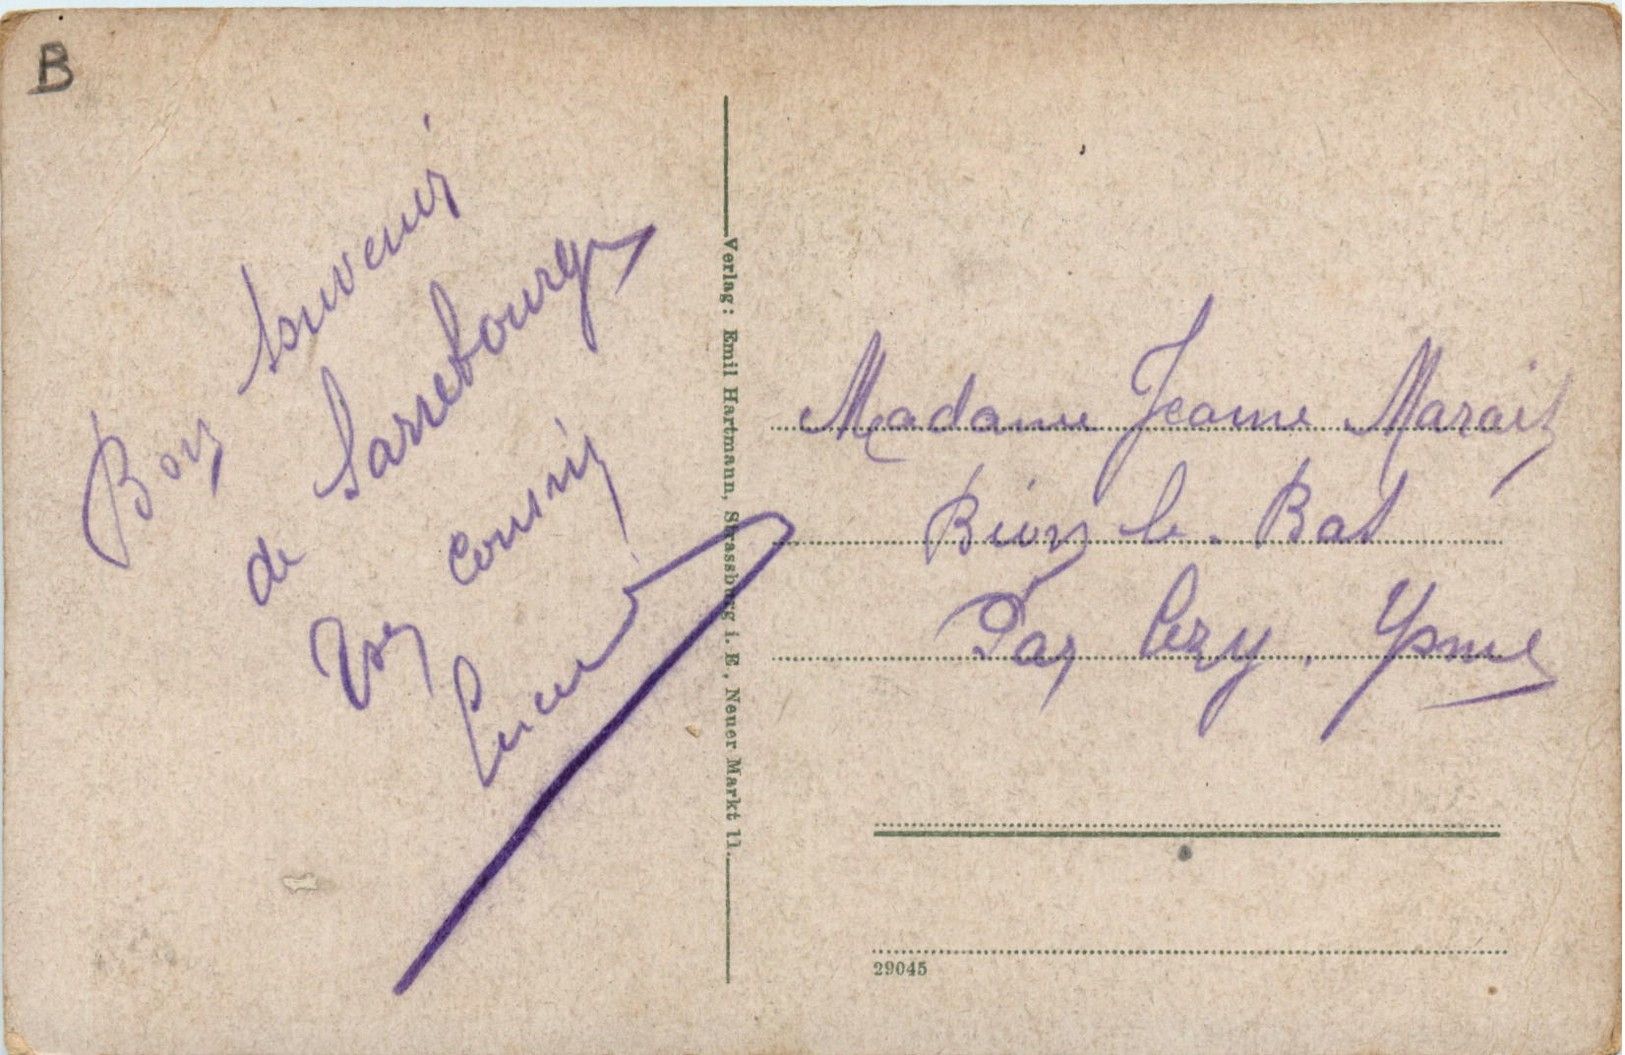 B
Bon souvenir
de Sarrebourg
Ton cousin
Lucien
Verlag: Emil Hartmann, Strassburg i. E., Neuer Markt 11.
Madame Jeanne
le. Bas
Par Cézy. Yonne
29045